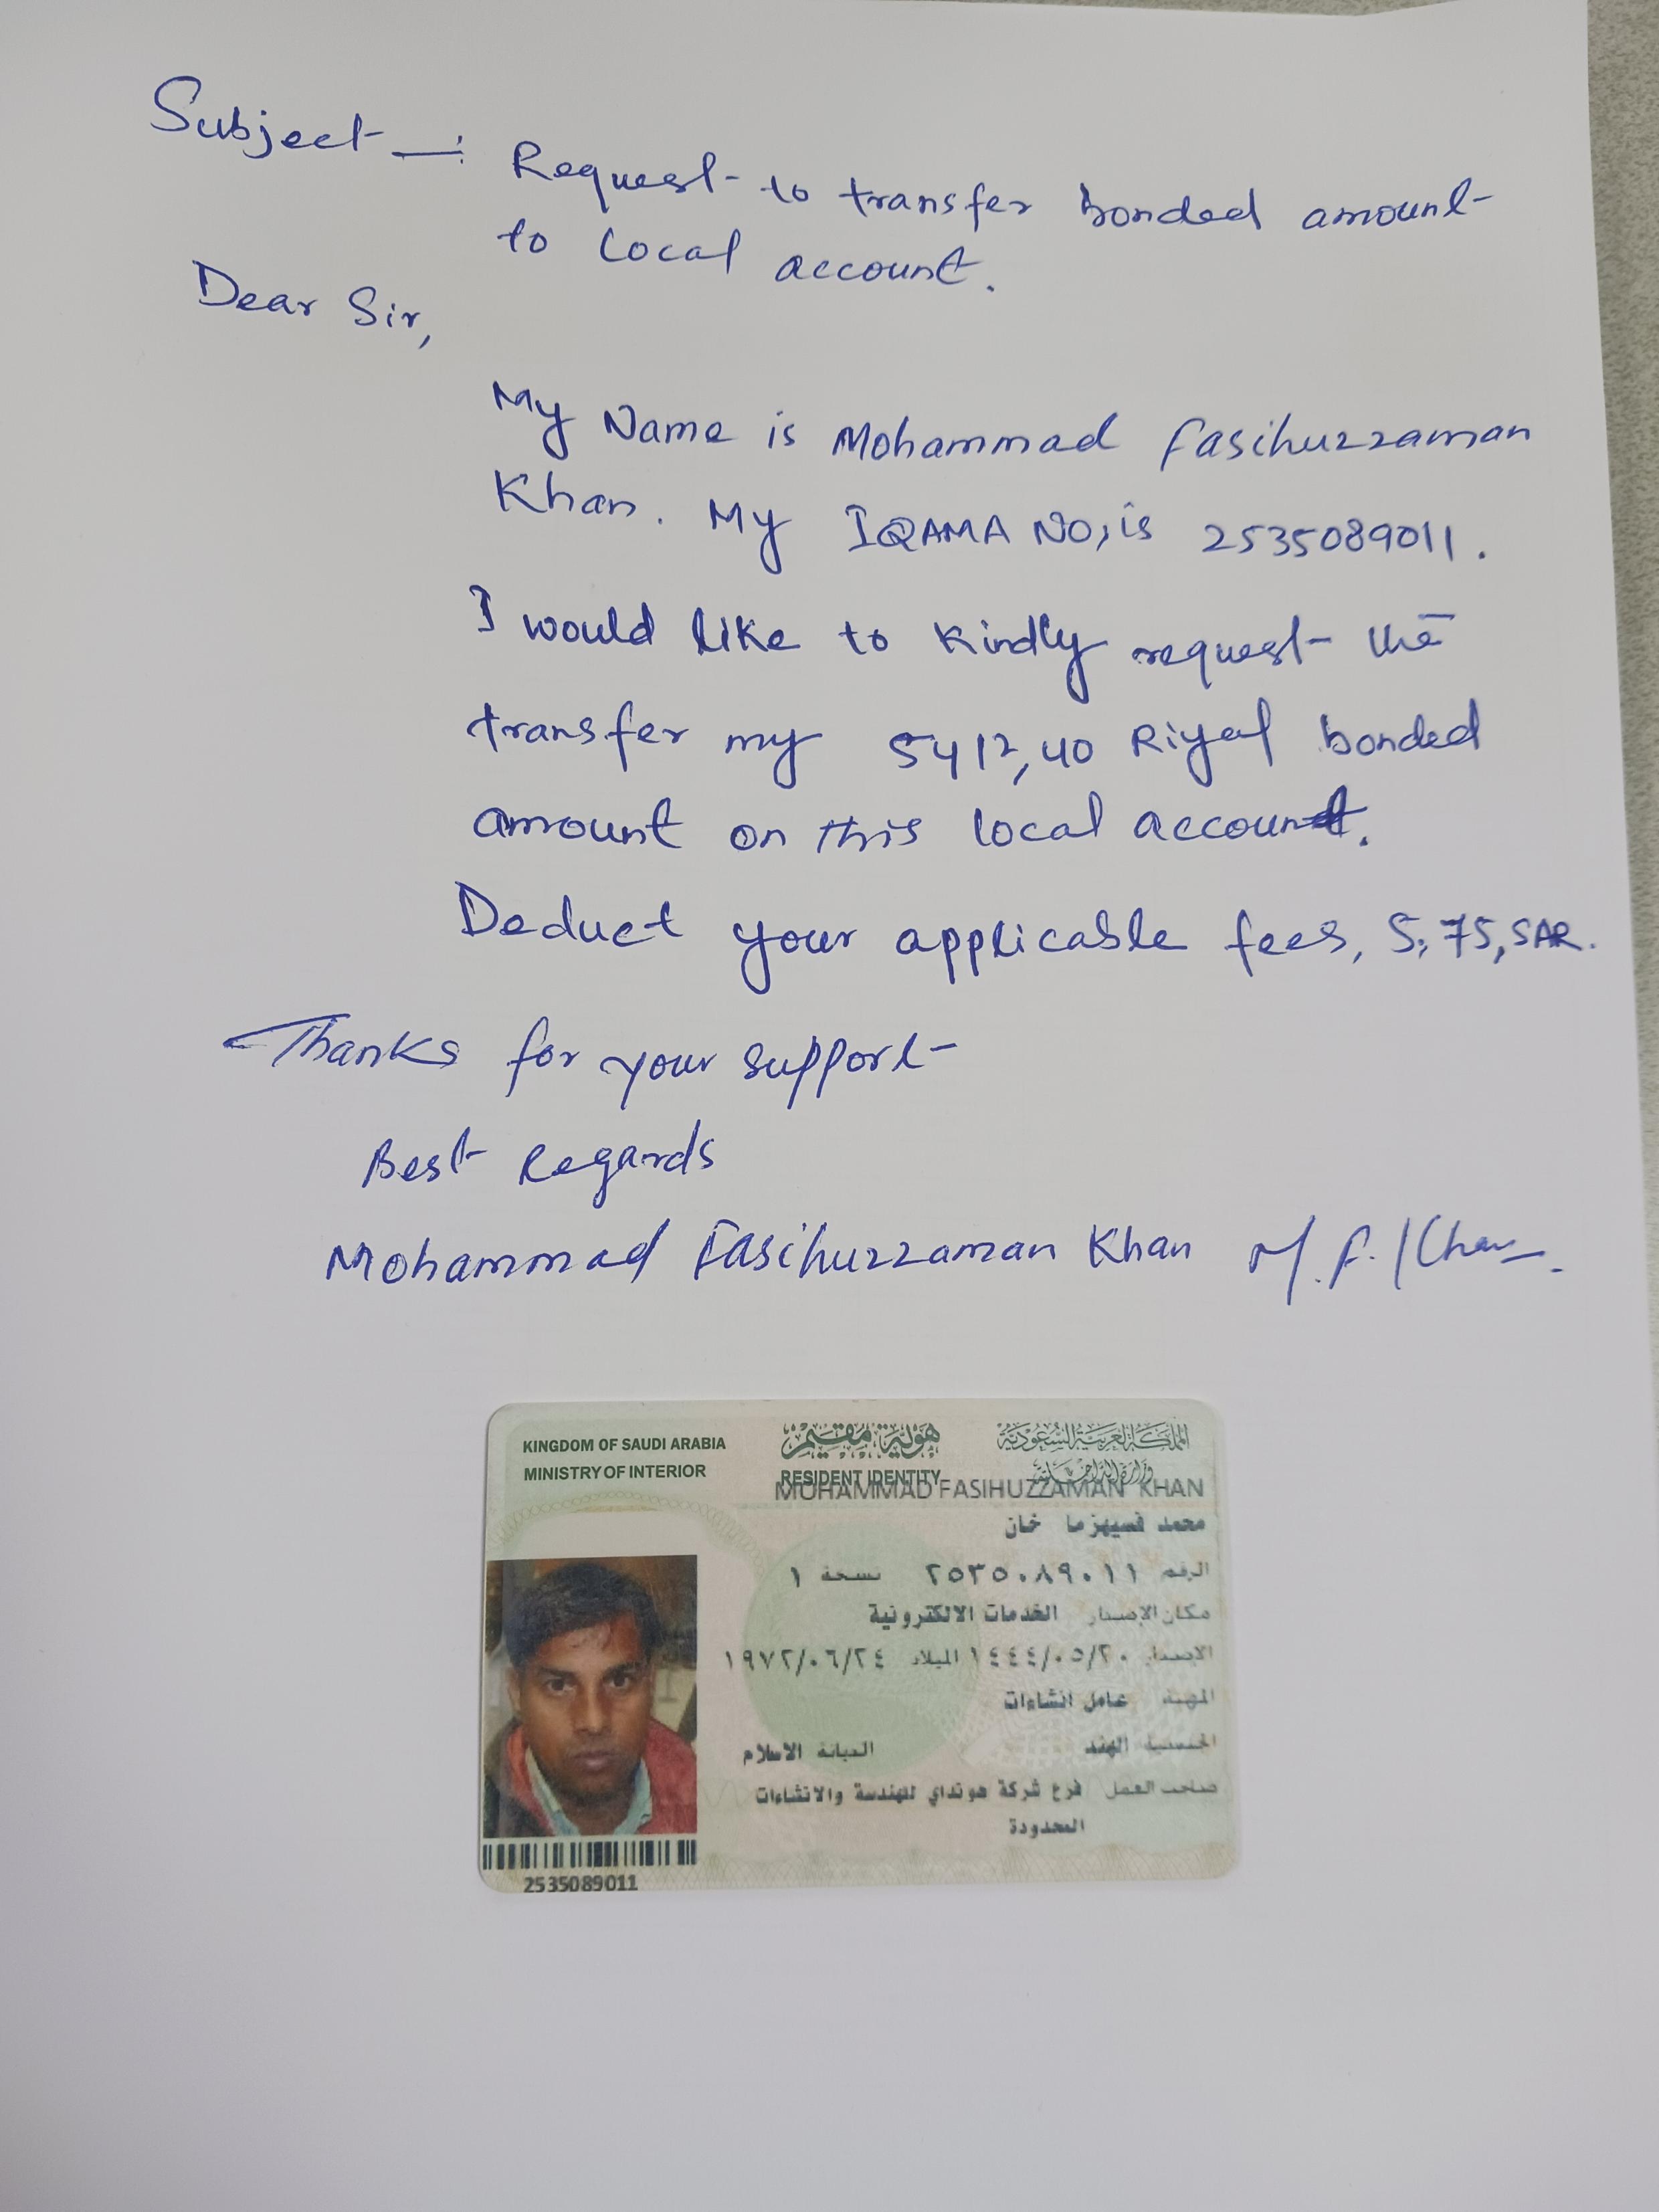 Subject —:
Request to transfer bonded amount
to local account.
Dear Sir,
My Name is Mohammad Fasihuzzaman
Khan. My IQAMA NO, is 2535089011.
I would like to kindly request the
transfer my 5412,40 Riyal bonded
amount on this local account.
Deduct your applicable fees, 5,75, SAR.
Thanks for your support
Best Regards
Mohammad Fasihuzzaman Khan M.F. Khan
KINGDOM OF SAUDI ARABIA هوية مقيم المملكة العربية السعودية
MINISTRY OF INTERIOR RESIDENT IDENTITY وزارة الداخلية
MOHAMMAD FASIHUZZAMAN KHAN
محمد فسيهزما خان
الرقم ٢٥٣٥٠٨٩٠١١ نسخة ١
مكان الإصدار الخدمات الالكترونية
الإصدار ١٤٤٤/٠٥/٢٠ الميلاد ١٩٧٢/٠٦/٢٤
المهنة عامل انشاءات
الجنسية الهند الديانة الاسلام
صاحب العمل فرع شركة هونداي للهندسة والانشاءات
المحدودة
2535089011